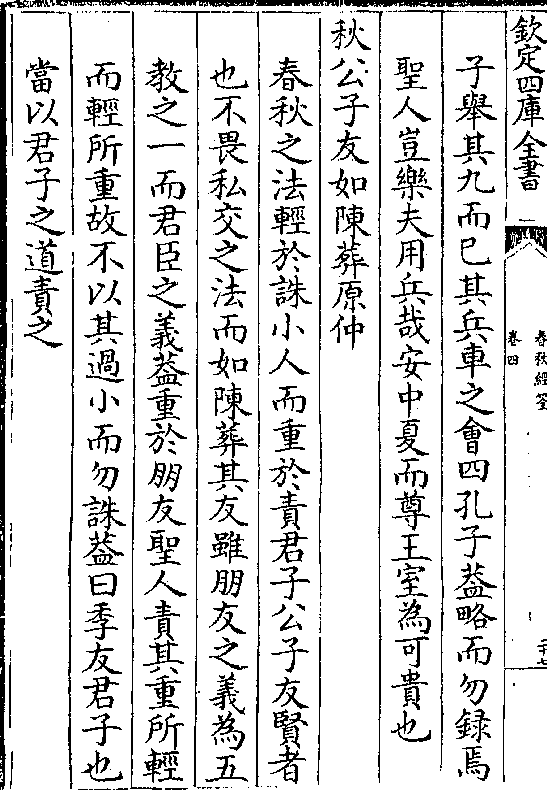 欽定四庫全書
春秋經筌
卷四
二十七
子舉其九而已其兵車之會四孔子葢略而勿録焉
聖人豈樂夫用兵哉安中夏而尊王室為可貴也
秋公子友如陳葬原仲
春秋之法輕於誅小人而重於責君子公子友賢者
也不畏私交之法而如陳葬其友雖朋友之義為五
教之一而君臣之義葢重於朋友聖人責其重所輕
而輕所重故不以其過小而勿誅葢曰季友君子也
當以君子之道責之